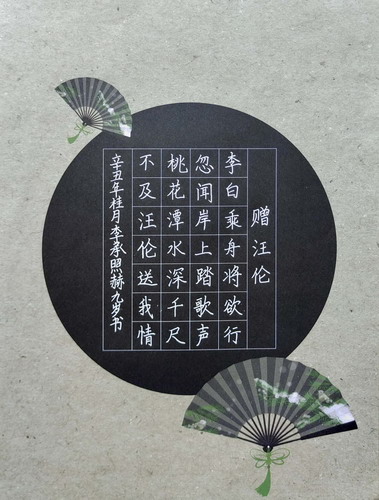 赠汪伦
李白乘舟将欲行
忽闻岸上踏歌声
桃花潭水深千尺
不及汪伦送我情
辛丑年桂月李承照赫九岁书